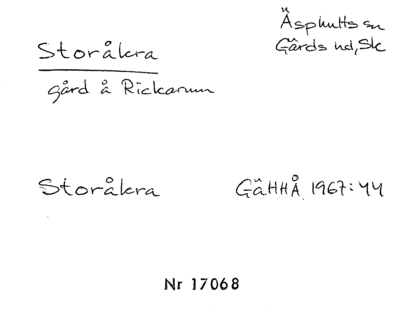 Storåkra
Äsphults sn
Gärds hd, Sk
gård å Rickarum
Storåkra GäHHÅ 1967:44
Nr 17068